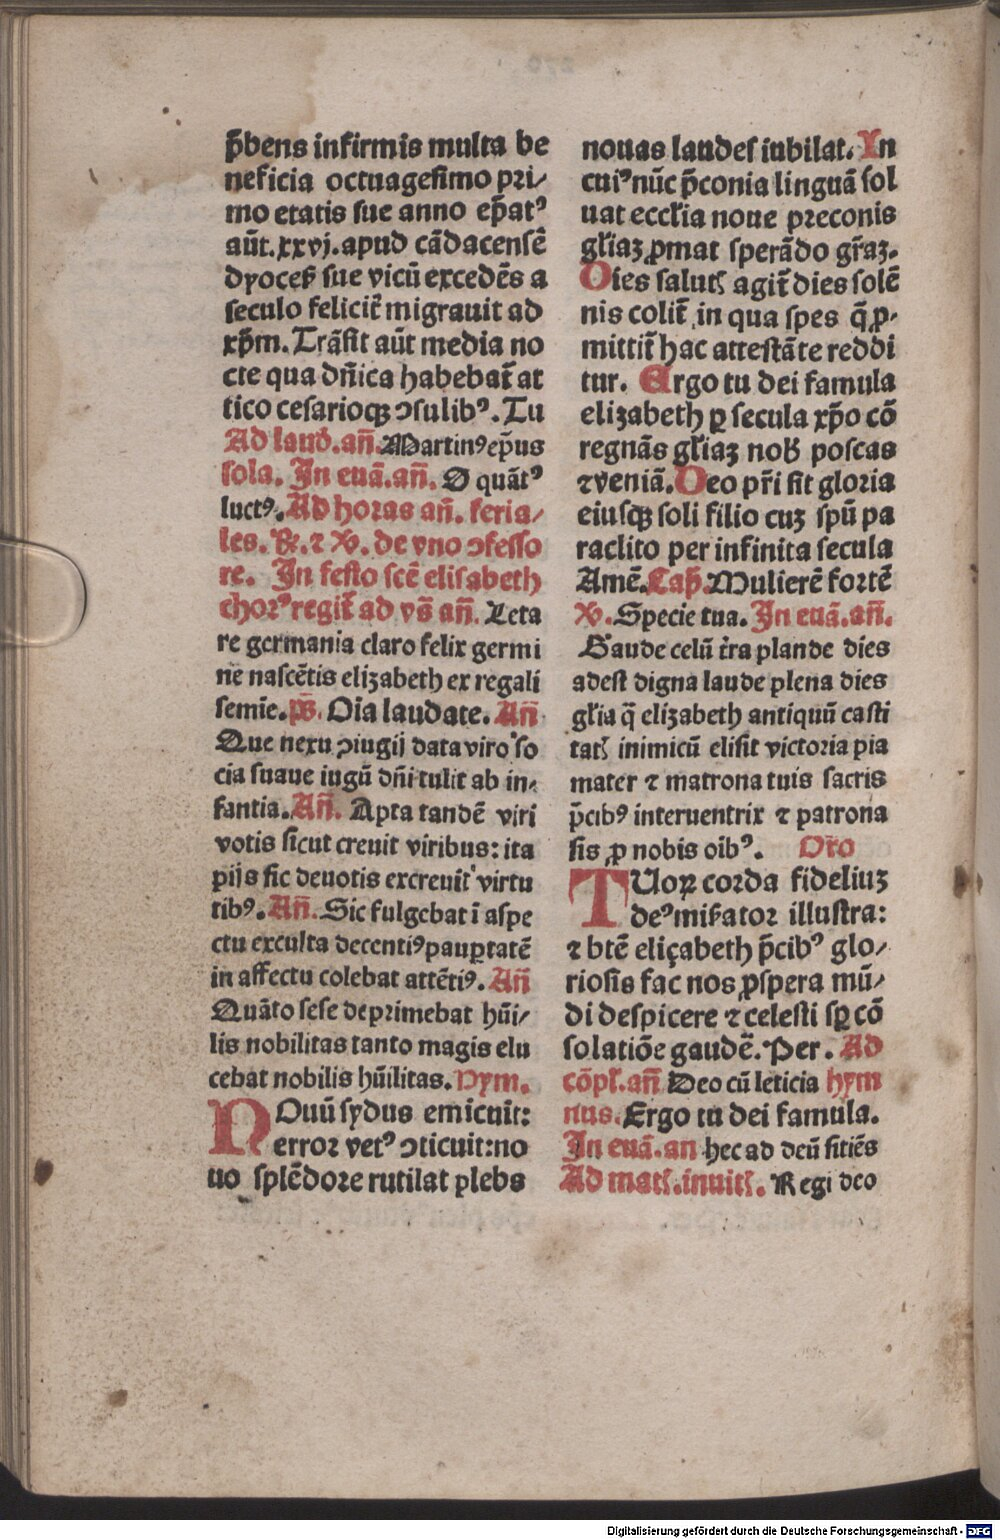 p̄bens infirmis multa be
neficia octuagesimo pri/
mo etatis sue anno ep̄atꝰ
aūt.xxvj.apud cādacensē
dyoceß sue vicū excedēs a
seculo felicit̄ migrauit ad
xp̄m. Trāsit aūt media no
cte qua dn̄ica habebat̄ at
tico cesarioqꝫ ꝯsulibꝰ. Tu
Ad laud̄.an̄. Martinꝰ ep̄us
sola. In euā.an̄. O quātꝰ
luctꝰ. Ad horas an̄. feria/
les. R̄. ⁊ V̄. de vno ꝯfesso
re. In festo scē elisabeth
chorꝰ regit̄ ad vs̄ an̄. Leta
re germania claro felix germi
ne nascētis elizabeth ex regali
semīe. ps̄. Oīa laudate. An̄
Que nexu ꝯiugij data viro so
cia suaue iugū dn̄i tulit ab in/
fantia. An̄. Apta tandē viri
votis sicut creuit viribus: ita
pijs sic deuotis excreuit virtu
tibꝰ. An̄. Sic fulgebat ī aspe
ctu exculta decentiꝰ paupꝑtatē
in affectu colebat attētiꝰ. An̄
Quāto sese deprimebat hūi/
lis nobilitas tanto magis elu
cebat nobilis hūilitas. Nym.
NOuū sydus emicuit:
error vetꝰ ꝯticuit: no
uo splēdore rutilat plebs
nouas laudes iubilat. In
cuiꝰ nūc p̄conia linguā sol
uat eccl̄ia noue preconis
gl̄iaꝫ ꝓmat sperādo gr̄aꝫ.
Dies salutꝭ agit̄ dies solē
nis colit̄ in qua spes q̄ ꝓ/
mittit̄ hac attestāte reddi
tur. Ergo tu dei famula
elizabeth ꝑ secula xp̄o cō
regnās gl̄iaꝫ nob̄ poscas
⁊ veniā. Deo pr̄i sit gloria
eiusqꝫ soli filio cuꝫ spū pa
raclito per infinita secula
Amē. Cap̄. Mulierē fortē
V̄. Specie tua. In euā.an̄.
Gaude celū t̄ra plande dies
adest digna laude plena dies
gl̄ia q̄ elizabeth antiquū casti
tatꝭ inimicū elisit victoria pia
mater ⁊ matrona tuis sacris
p̄cibꝰ interuentrix ⁊ patrona
sis ꝓ nobis oibꝰ. Or̄o
TUoꝝ corda fideliuꝫ
deꝰ miẜator illustra:
⁊ btē eliçabeth p̄cibꝰ glo/
riosis fac nos ꝓspera mū/
di despicere ⁊ celesti sꝑ cō
solatiōe gaudē. Per. Ad
cōpl̄.an̄ Deo cū leticia hym
nus. Ergo tu dei famula.
In euā.an hec ad deū sitiēs
Ad matꝭ.inuitꝭ. Regi deo
Digitalisierung gefördert durch die Deutsche Forschungsgemeinschaft - DFG